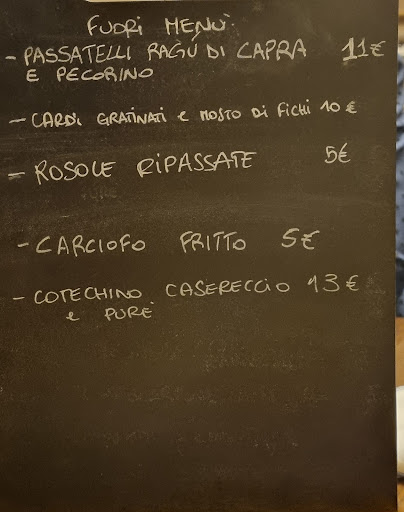 FUORI MENÙ
- PASSATELLI RAGÙ DI CAPRA 11€
E PECORINO
- CARDI GRATINATI E MOSTO DI FICHI 10 €
- ROSOLE RIPASSATE 5€
- CARCIOFO FRITTO 5€
- COTECHINO CASERECCIO 13€
e PURÈ